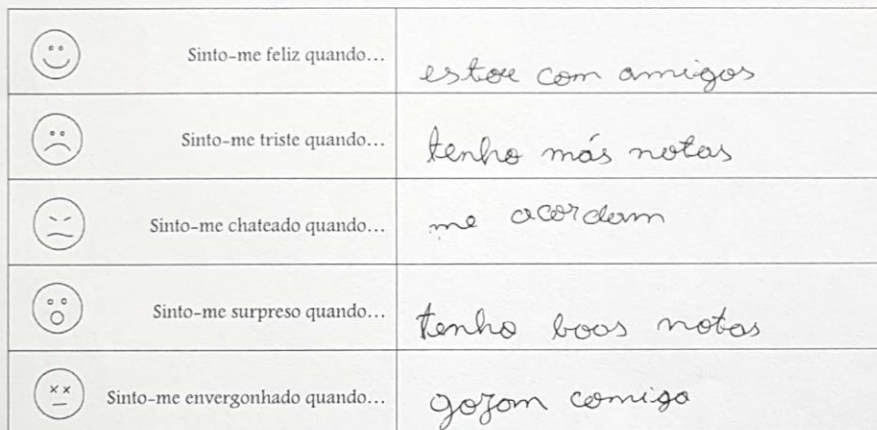 Sinto-me feliz quando... estou com amigos
Sinto-me triste quando... tenho más notas
Sinto-me chateado quando... me acordam
Sinto-me surpreso quando... tenho boas notas
Sinto-me envergonhado quando... gozam comigo